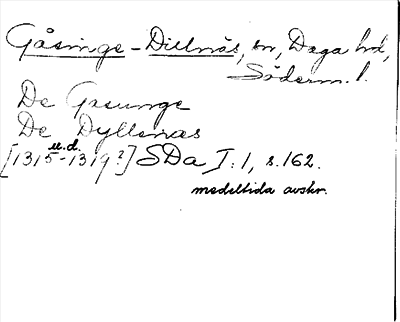 Gåsinge-Dillnäs, sn, Daga hd,
Söderm. l.
De Gasunge
De Dyllenæs
u.d.
[1315-1319?] SDa I:1, s.162.
medeltida avskr.